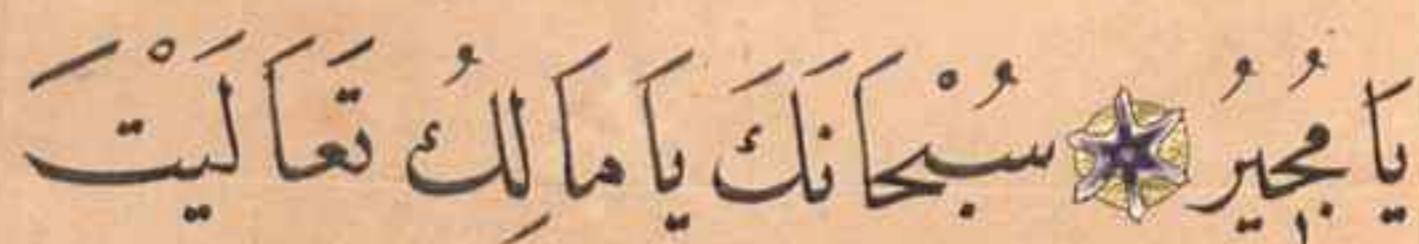 يَا مُجِيرُ سُبْحَانَكَ يَا مَالِكُ تَعَالَيْتَ